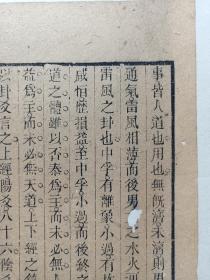 事皆人道也用也無旣濟未濟則男
通氣雷風相薄而後男之水火可
雷風之卦也中孚有離象小過有坎
咸恒歴損益至中孚小過而後終之
道之體雖以否泰爲主而未必無
益爲主而未必無天道上下經之
以卦爻言之上經陽爻八十六陰